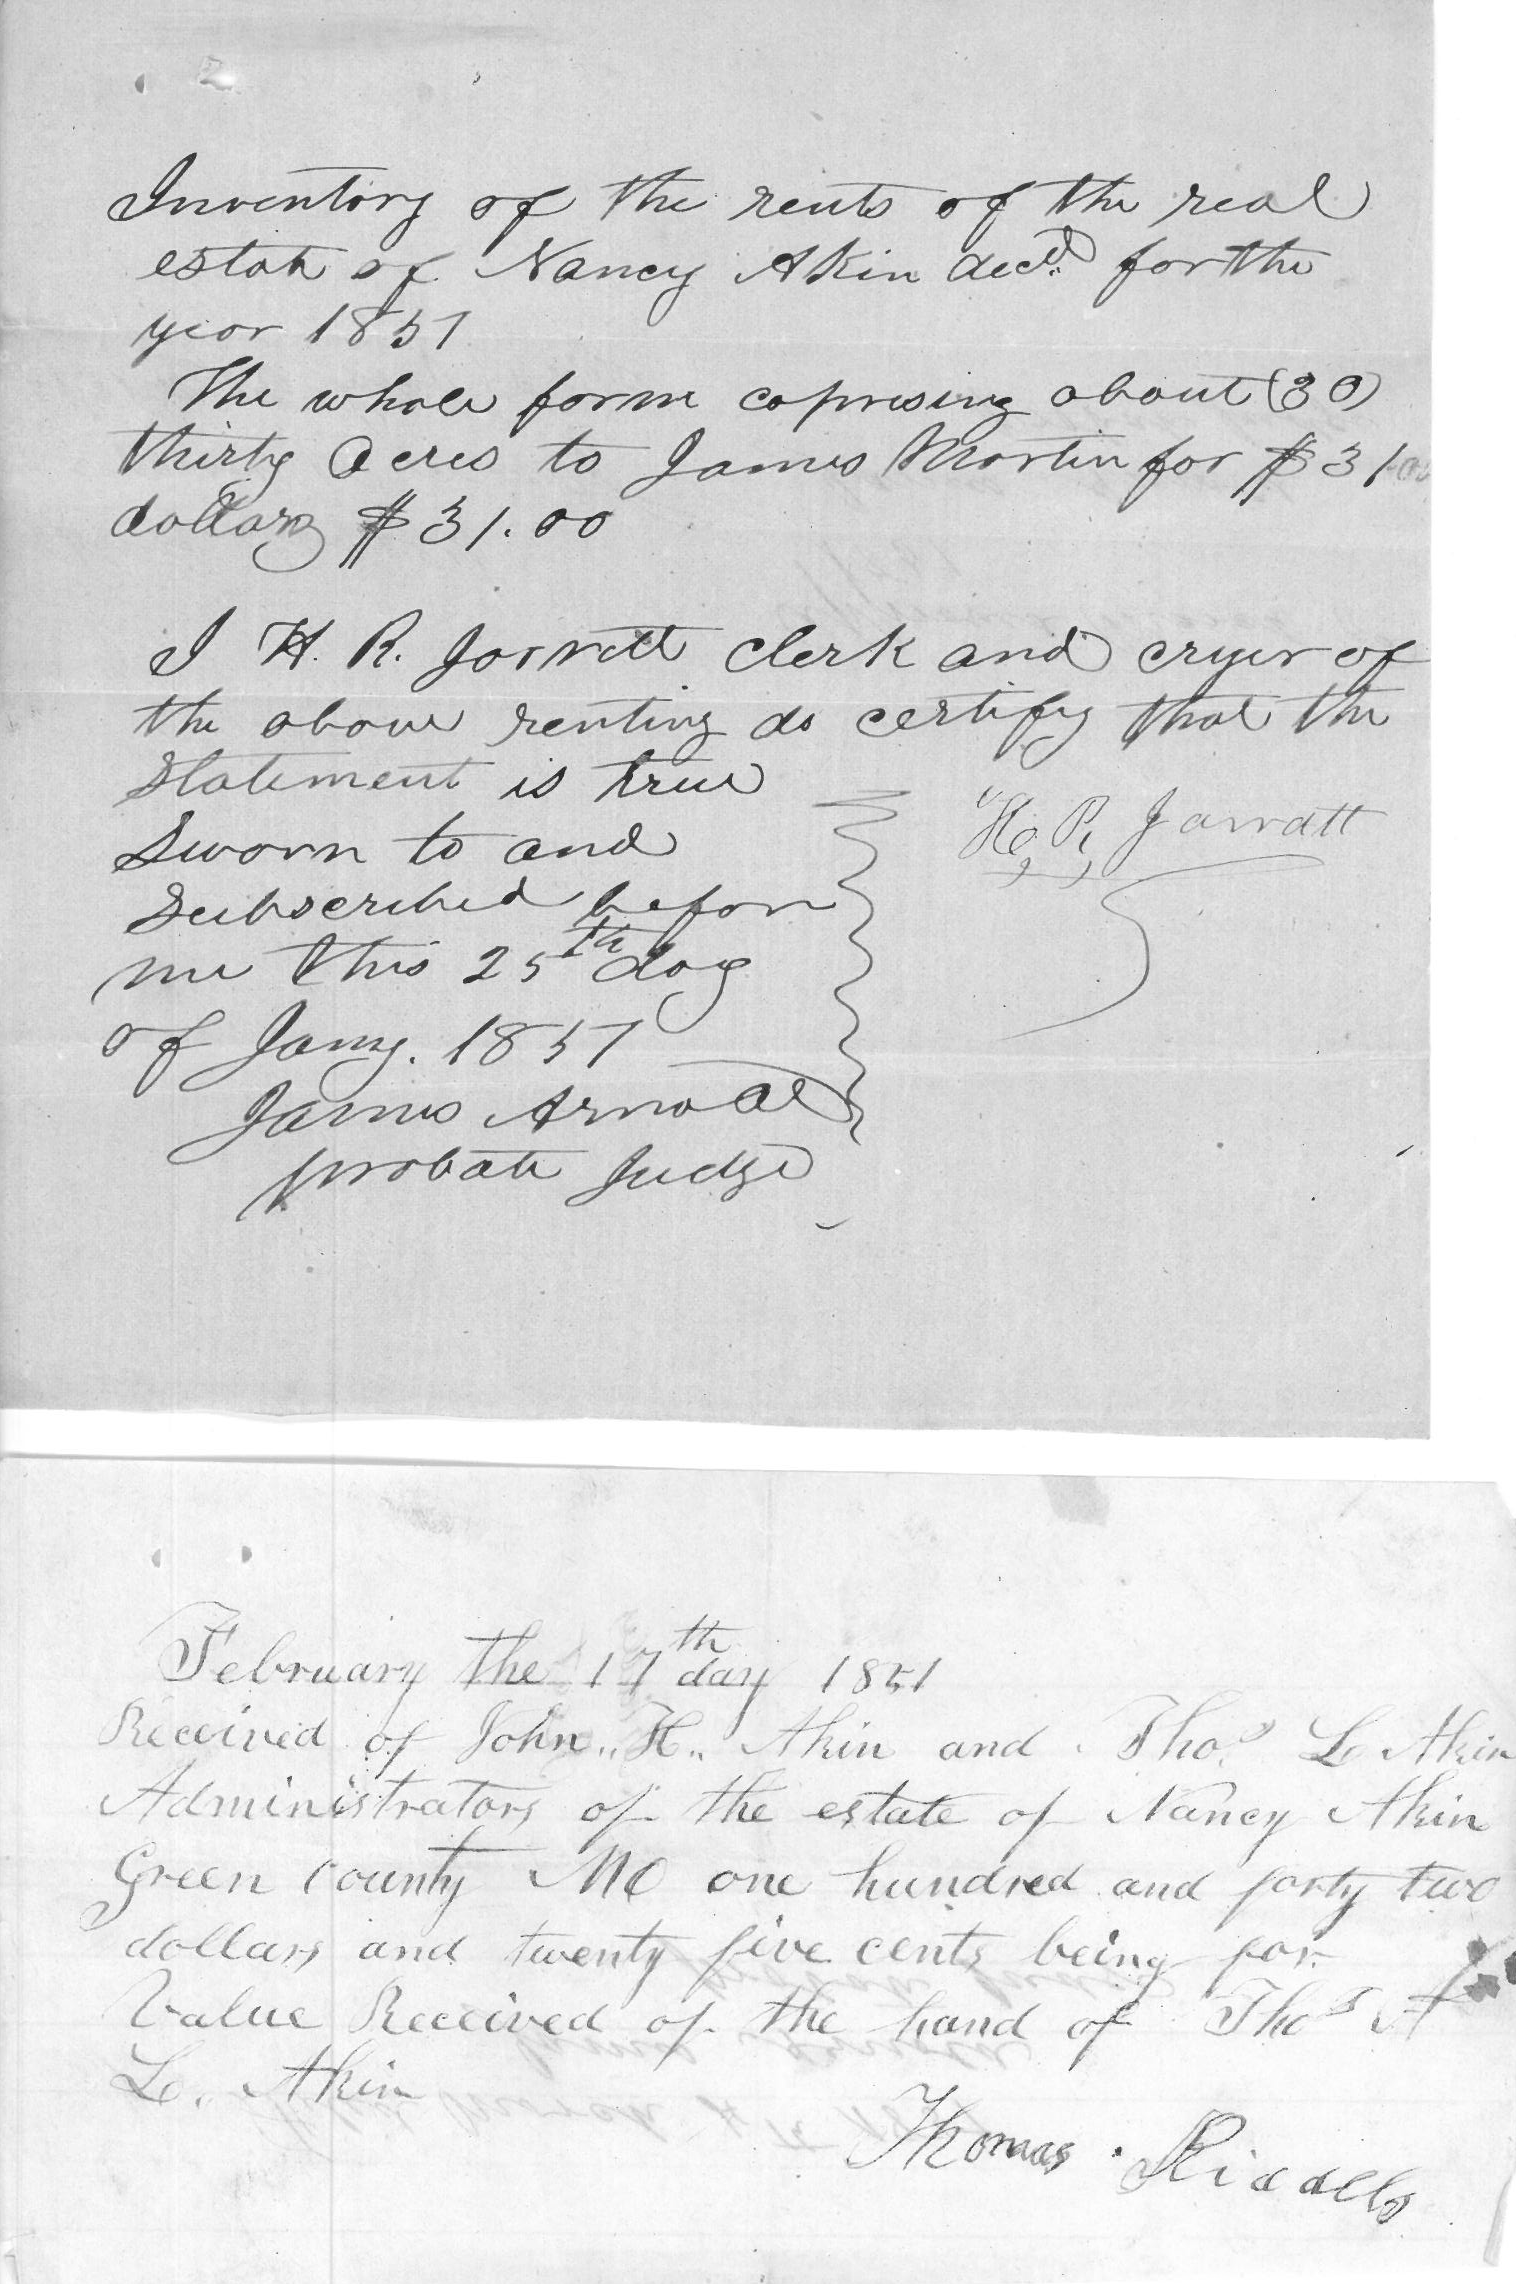 Inventory of the rents of the real
estate of Nancy Akin decd. for the
year 1851
The whole farm coprising about (30)
thirty acres to James Martin for $31.00
dollars $31.00
I H. R. Jarratt clerk and cryer of
the above renting do certify that the
Statement is true
H. R. Jarratt
Sworn to and
Subscribed before
me this 25th day
of Jany. 1851
James Arnold
probate Judge
February the 17th day 1851
Received of John H. Akin and Thos. L Akin
Administrators of the estate of Nancy Akin
Green County MO one hundred and forty two
dollars and twenty five cents being for
Value Received of the hand of Thos A
L. Akin
Thomas Riddells